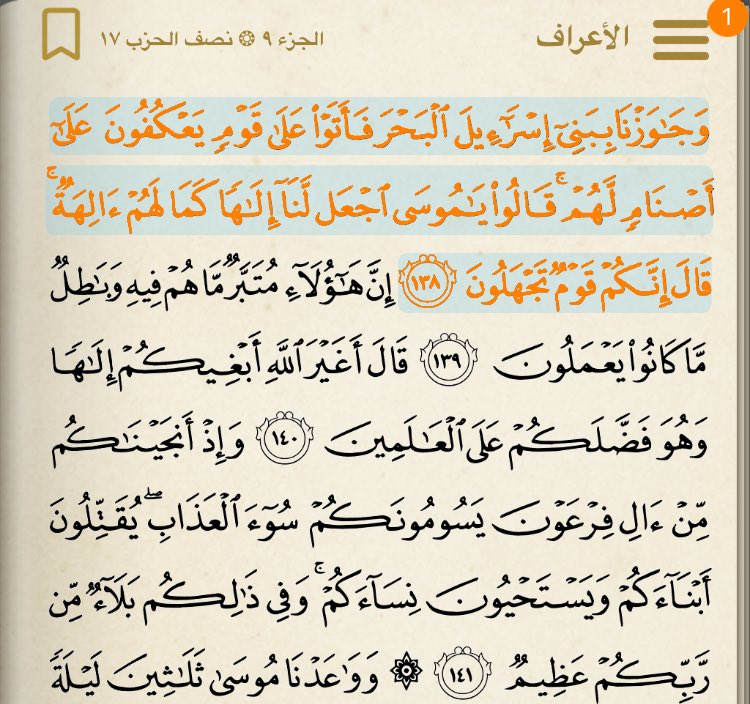 1
الأعراف
الجزء ٩ ۞ نصف الحزب ١٧
وَجَٰوَزۡنَا بِبَنِيٓ إِسۡرَٰٓءِيلَ ٱلۡبَحۡرَ فَأَتَوۡاْ عَلَىٰ قَوۡمٖ يَعۡكُفُونَ عَلَىٰٓ
أَصۡنَامٖ لَّهُمۡۚ قَالُواْ يَٰمُوسَى ٱجۡعَل لَّنَآ إِلَٰهٗا كَمَا لَهُمۡ ءَالِهَةٞۚ
قَالَ إِنَّكُمۡ قَوۡمٞ تَجۡهَلُونَ ١٣٨ إِنَّ هَٰٓؤُلَآءِ مُتَبَّرٞ مَّا هُمۡ فِيهِ وَبَٰطِلٞ
مَّا كَانُواْ يَعۡمَلُونَ ١٣٩ قَالَ أَغَيۡرَ ٱللَّهِ أَبۡغِيكُمۡ إِلَٰهٗا
وَهُوَ فَضَّلَكُمۡ عَلَى ٱلۡعَٰلَمِينَ ١٤٠ وَإِذۡ أَنجَيۡنَٰكُم
مِّنۡ ءَالِ فِرۡعَوۡنَ يَسُومُونَكُمۡ سُوٓءَ ٱلۡعَذَابِۖ يُقَتِّلُونَ
أَبۡنَآءَكُمۡ وَيَسۡتَحۡيُونَ نِسَآءَكُمۡۚ وَفِي ذَٰلِكُم بَلَآءٞ مِّن
رَّبِّكُمۡ عَظِيمٞ ١٤١ ۞ وَوَٰعَدۡنَا مُوسَىٰ ثَلَٰثِينَ لَيۡلَةٗ